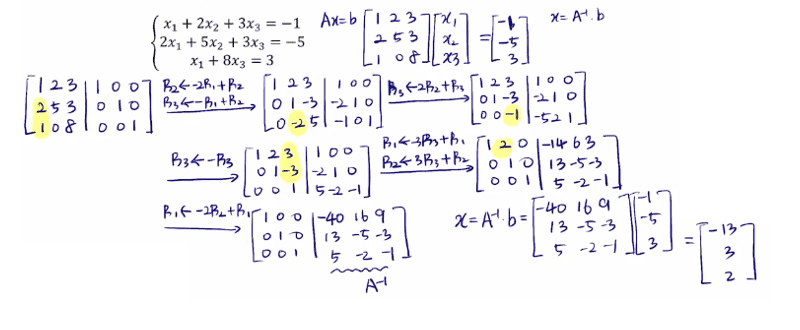 x₁ + 2x₂ + 3x₃ = −1
2x₁ + 5x₂ + 3x₃ = −5
x₁ + 8x₃ = 3
Ax=b [1 2 3; 2 5 3; 1 0 8] [x₁; x₂; x3] = [-1; -5; 3] x = A⁻¹·b
[1 2 3 | 1 0 0; 2 5 3 | 0 1 0; 1 0 8 | 0 0 1]
R₂←-2R₁+R₂
R₃←-R₁+R₂
[1 2 3 | 1 0 0; 0 1 -3 | -2 1 0; 0 -2 5 | -1 0 1]
R₃←2R₂+R₃
[1 2 3 | 1 0 0; 0 1 -3 | -2 1 0; 0 0 -1 | -5 2 1]
R₃←-R₃
[1 2 3 | 1 0 0; 0 1 -3 | -2 1 0; 0 0 1 | 5 -2 -1]
R₁←-3R₃+R₁
R₂←3R₃+R₂
[1 2 0 | -14 6 3; 0 1 0 | 13 -5 -3; 0 0 1 | 5 -2 -1]
R₁←-2R₂+R₁
[1 0 0 | -40 16 9; 0 1 0 | 13 -5 -3; 0 0 1 | 5 -2 -1]
A⁻¹
x = A⁻¹·b = [-40 16 9; 13 -5 -3; 5 -2 -1] [-1; -5; 3] = [-13; 3; 2]